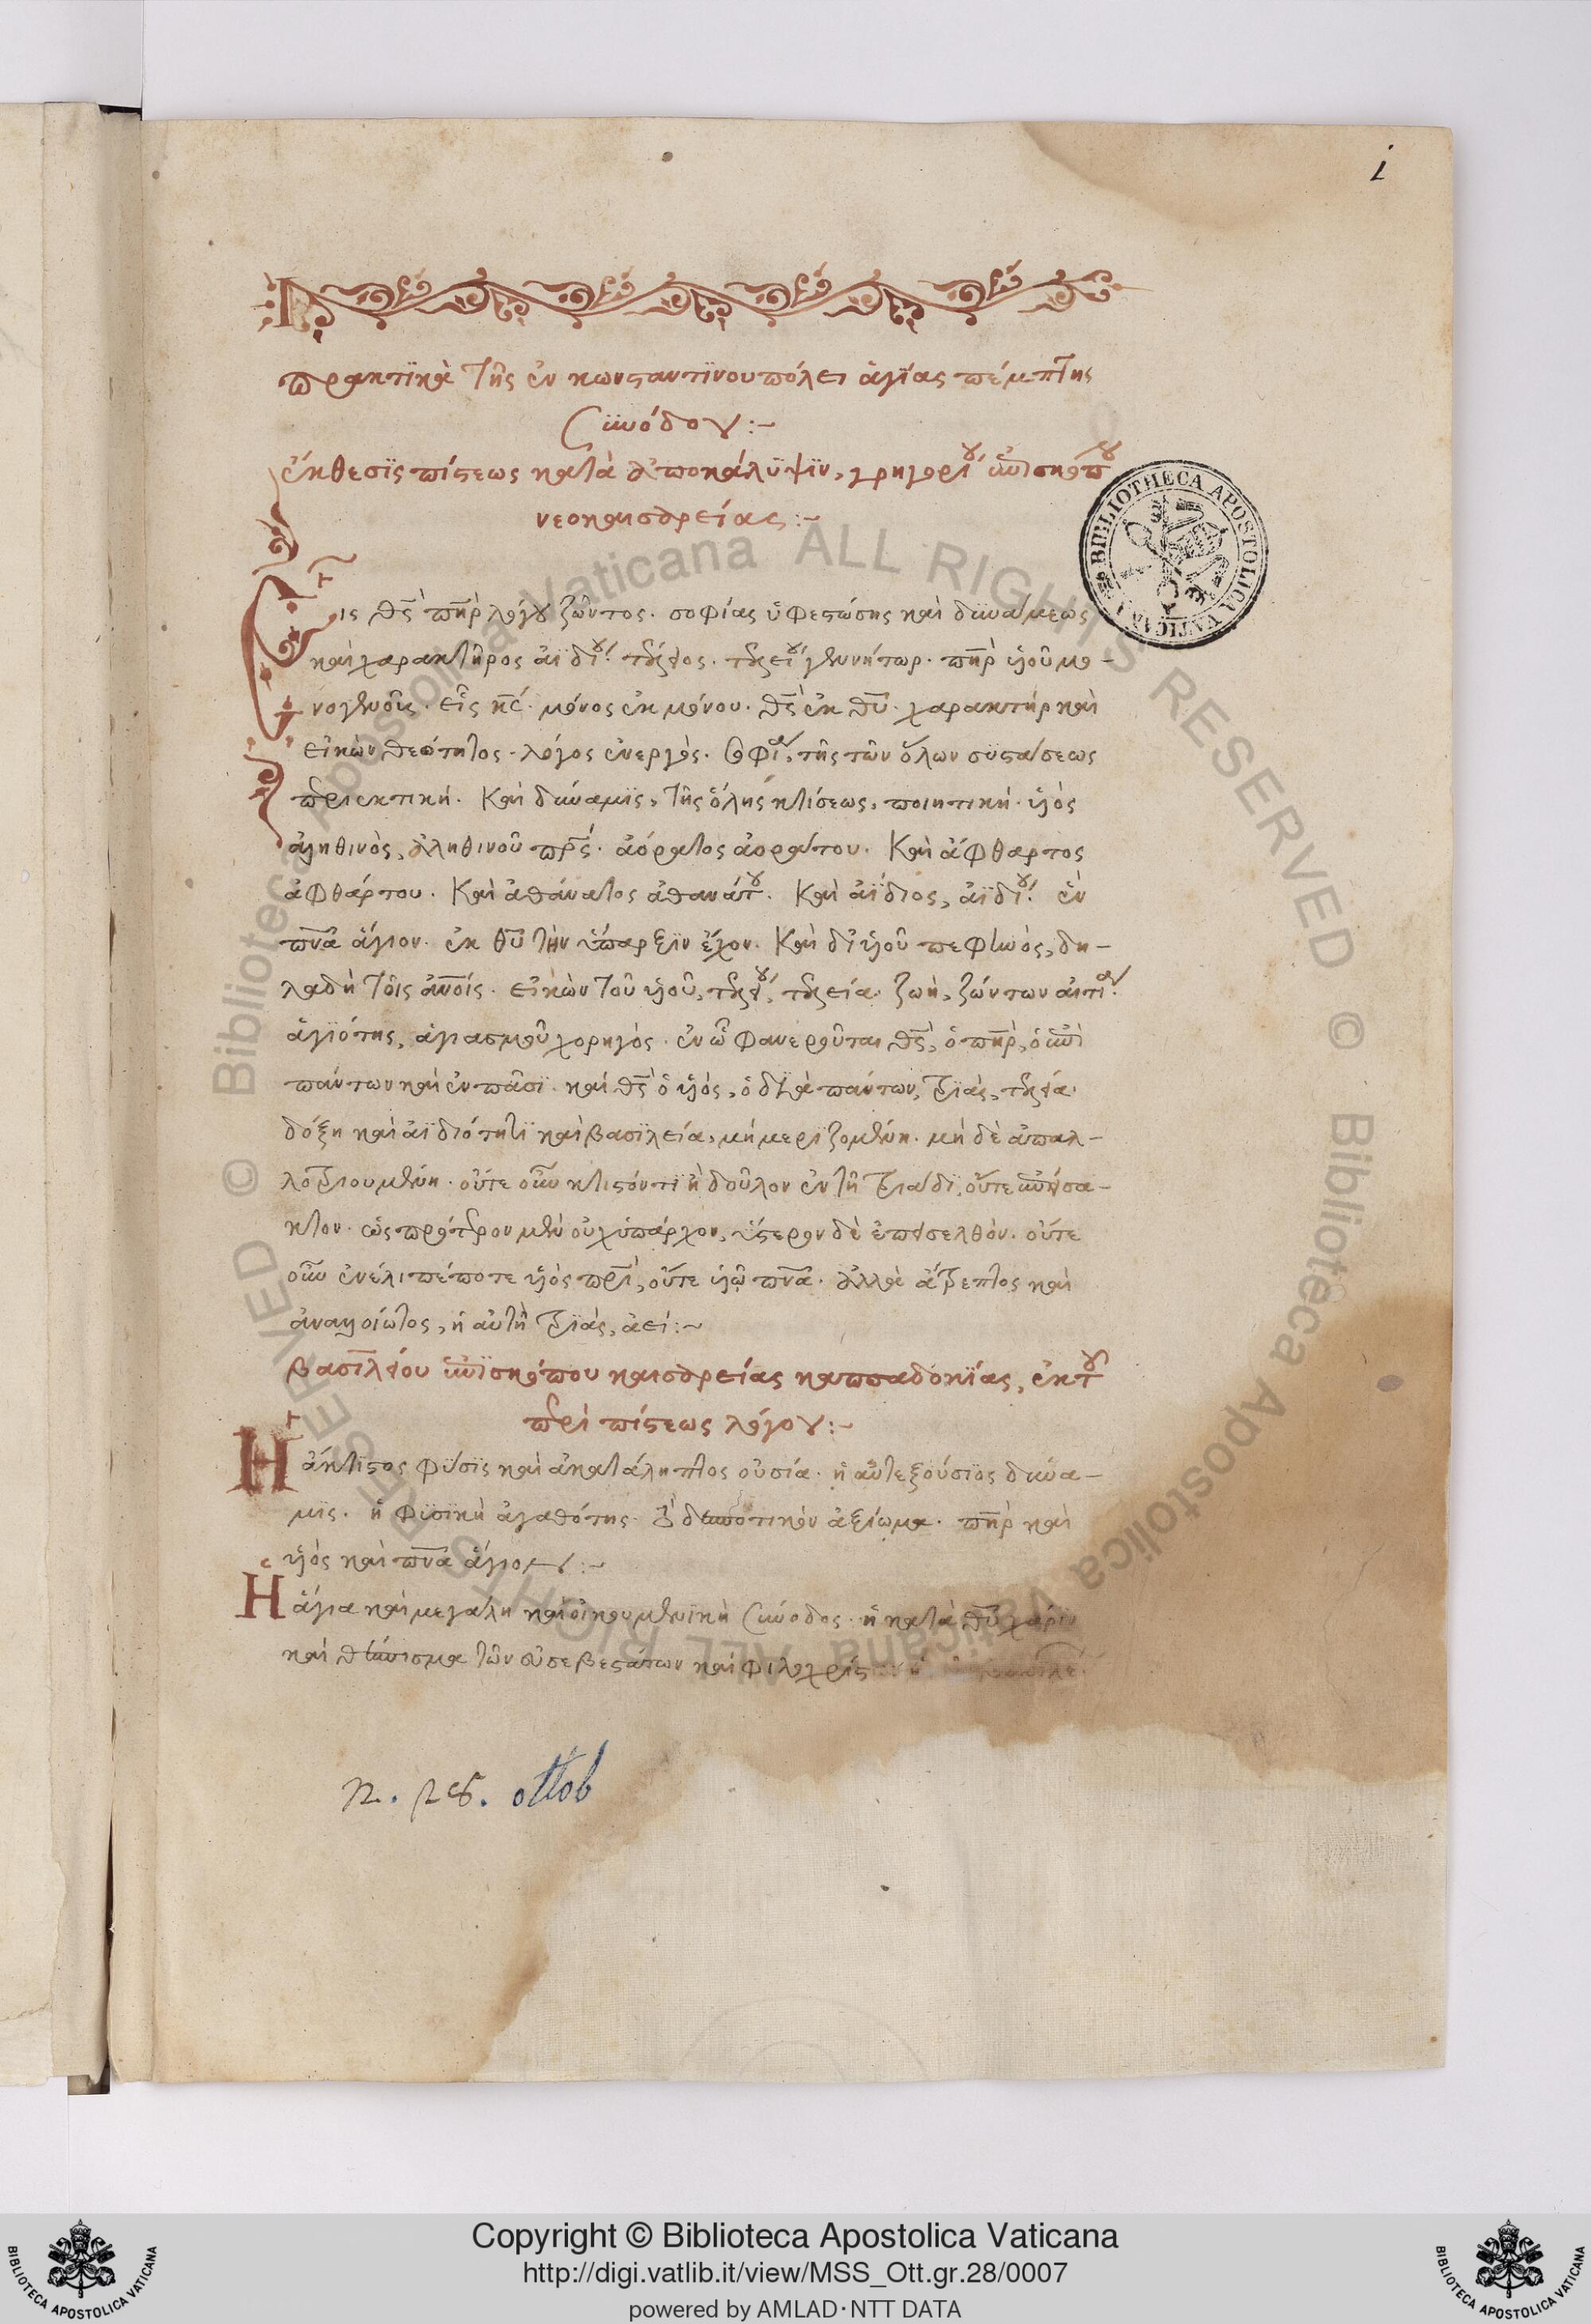 i
πρακτϊκὰ τῆς ἐν κωνσταντϊνουπόλει ἁγΐας πέμπτης
Συνόδου :~
ἔκθεσϊς πίστεως κατὰ ἀποκάλϋψϊν, γρηγορίου ἐπισκόπου
νεοκαισαρείας :~
Εἷς θς πηρ λόγου ζῶντος. σοφίας ὑφεστώσης καὶ δυνάμεως
καὶ χαρακτῆρος ἀϊδίου. τέλειος. τελείου γεννήτωρ. πηρ υἱοῦ μο-
νογενοῦς. εἷς κς. μόνος ἐκ μόνου. θς ἐκ θυ. χαρακτήρ καὶ
εἰκὼν θεότητος. λόγος ἐνεργός. Σοφία, τῆς τῶν ὅλων συστάσεως
περιεκτική. Καὶ δύναμϊς, τῆς ὅλης κτίσεως, ποιητική. υἱὸς
ἀληθινὸς, ἀληθινοῦ πρς. ἀόρατος ἀοράτου. Καὶ ἄφθαρτος
ἀφθάρτου. Καὶ ἀθάνατος ἀθανάτου. Καὶ ἀΐδιος, ἀϊδίου. ἓν
πνα ἅγιον. ἐκ θυ τὴν ὕπαρξϊν ἔχον. Καὶ δι' υἱοῦ πεφηνὸς, δη-
λαδὴ τοῖς ἀνοις. εἰκὼν τοῦ υἱοῦ, τελείου, τελεία. ζωὴ, ζώντων αἰτία.
ἁγϊότης, ἁγιασμοῦ χορηγός. ἐν ὧ φανεροῦται θς, ὁ πηρ, ὁ ἐπὶ
πάντων καὶ ἐν πᾶσϊ. καὶ θς ὁ υἱὸς, ὁ διὰ πάντων, τριὰς, τελεία.
δόξη καὶ ἀϊδιότητι καὶ βασϊλεία, μὴ μερϊζομένη. μὴ δὲ ἀπαλ-
λοτριουμένη. οὔτε οὖν κτιστόν τι ἢ δοῦλον ἐν τῆ τριάδϊ, οὔτε ἐπείσα-
κτον. ὡς πρότερον μὲν οὐχ ὑπάρχον, ὕστερον δὲ ἐπεισελθόν. οὔτε
οὖν ἐνέλιπέ ποτε υἱὸς πρι, οὔτε υἱῶ πνα. ἀλλὰ ἄτρεπτος καὶ
ἀναλλοίωτος, ἡ αὐτὴ τριὰς, ἀεί :~
βασϊλείου ἐπισκόπου καισαρείας καππαδοκΐας, ἐκ τοῦ
περὶ πίστεως λόγου :~
Ἡ ἄκτϊστος φύσϊς καὶ ἀκατάληπτος οὐσία. ἡ αὐτεξούσϊος δύνα-
μϊς. ἡ φϋσϊκὴ ἀγαθότης. τὸ δεσποτικὸν ἀξίωμα. πηρ καὶ
υἱὸς καὶ πνα ἅγιον :~
Ἡ ἁγία καὶ μεγάλη καὶ οἰκουμενϊκὴ Σύνοδος. ἡ κατὰ θυ χάρϊν
καὶ θέσπισμα τῶν εὐσεβεστάτων καὶ φιλοχρίστων
n. 28. ottob
BIBLIOTHECA APOSTOLICA VATICANA
© Biblioteca Apostolica Vaticana ALL RIGHTS RESERVED © Biblioteca Apostolica Vaticana ALL RIGHTS RESERVED
Copyright © Biblioteca Apostolica Vaticana
http://digi.vatlib.it/view/MSS_Ott.gr.28/0007
powered by AMLAD·NTT DATA
BIBLIOTECA APOSTOLICA VATICANA
BIBLIOTECA APOSTOLICA VATICANA